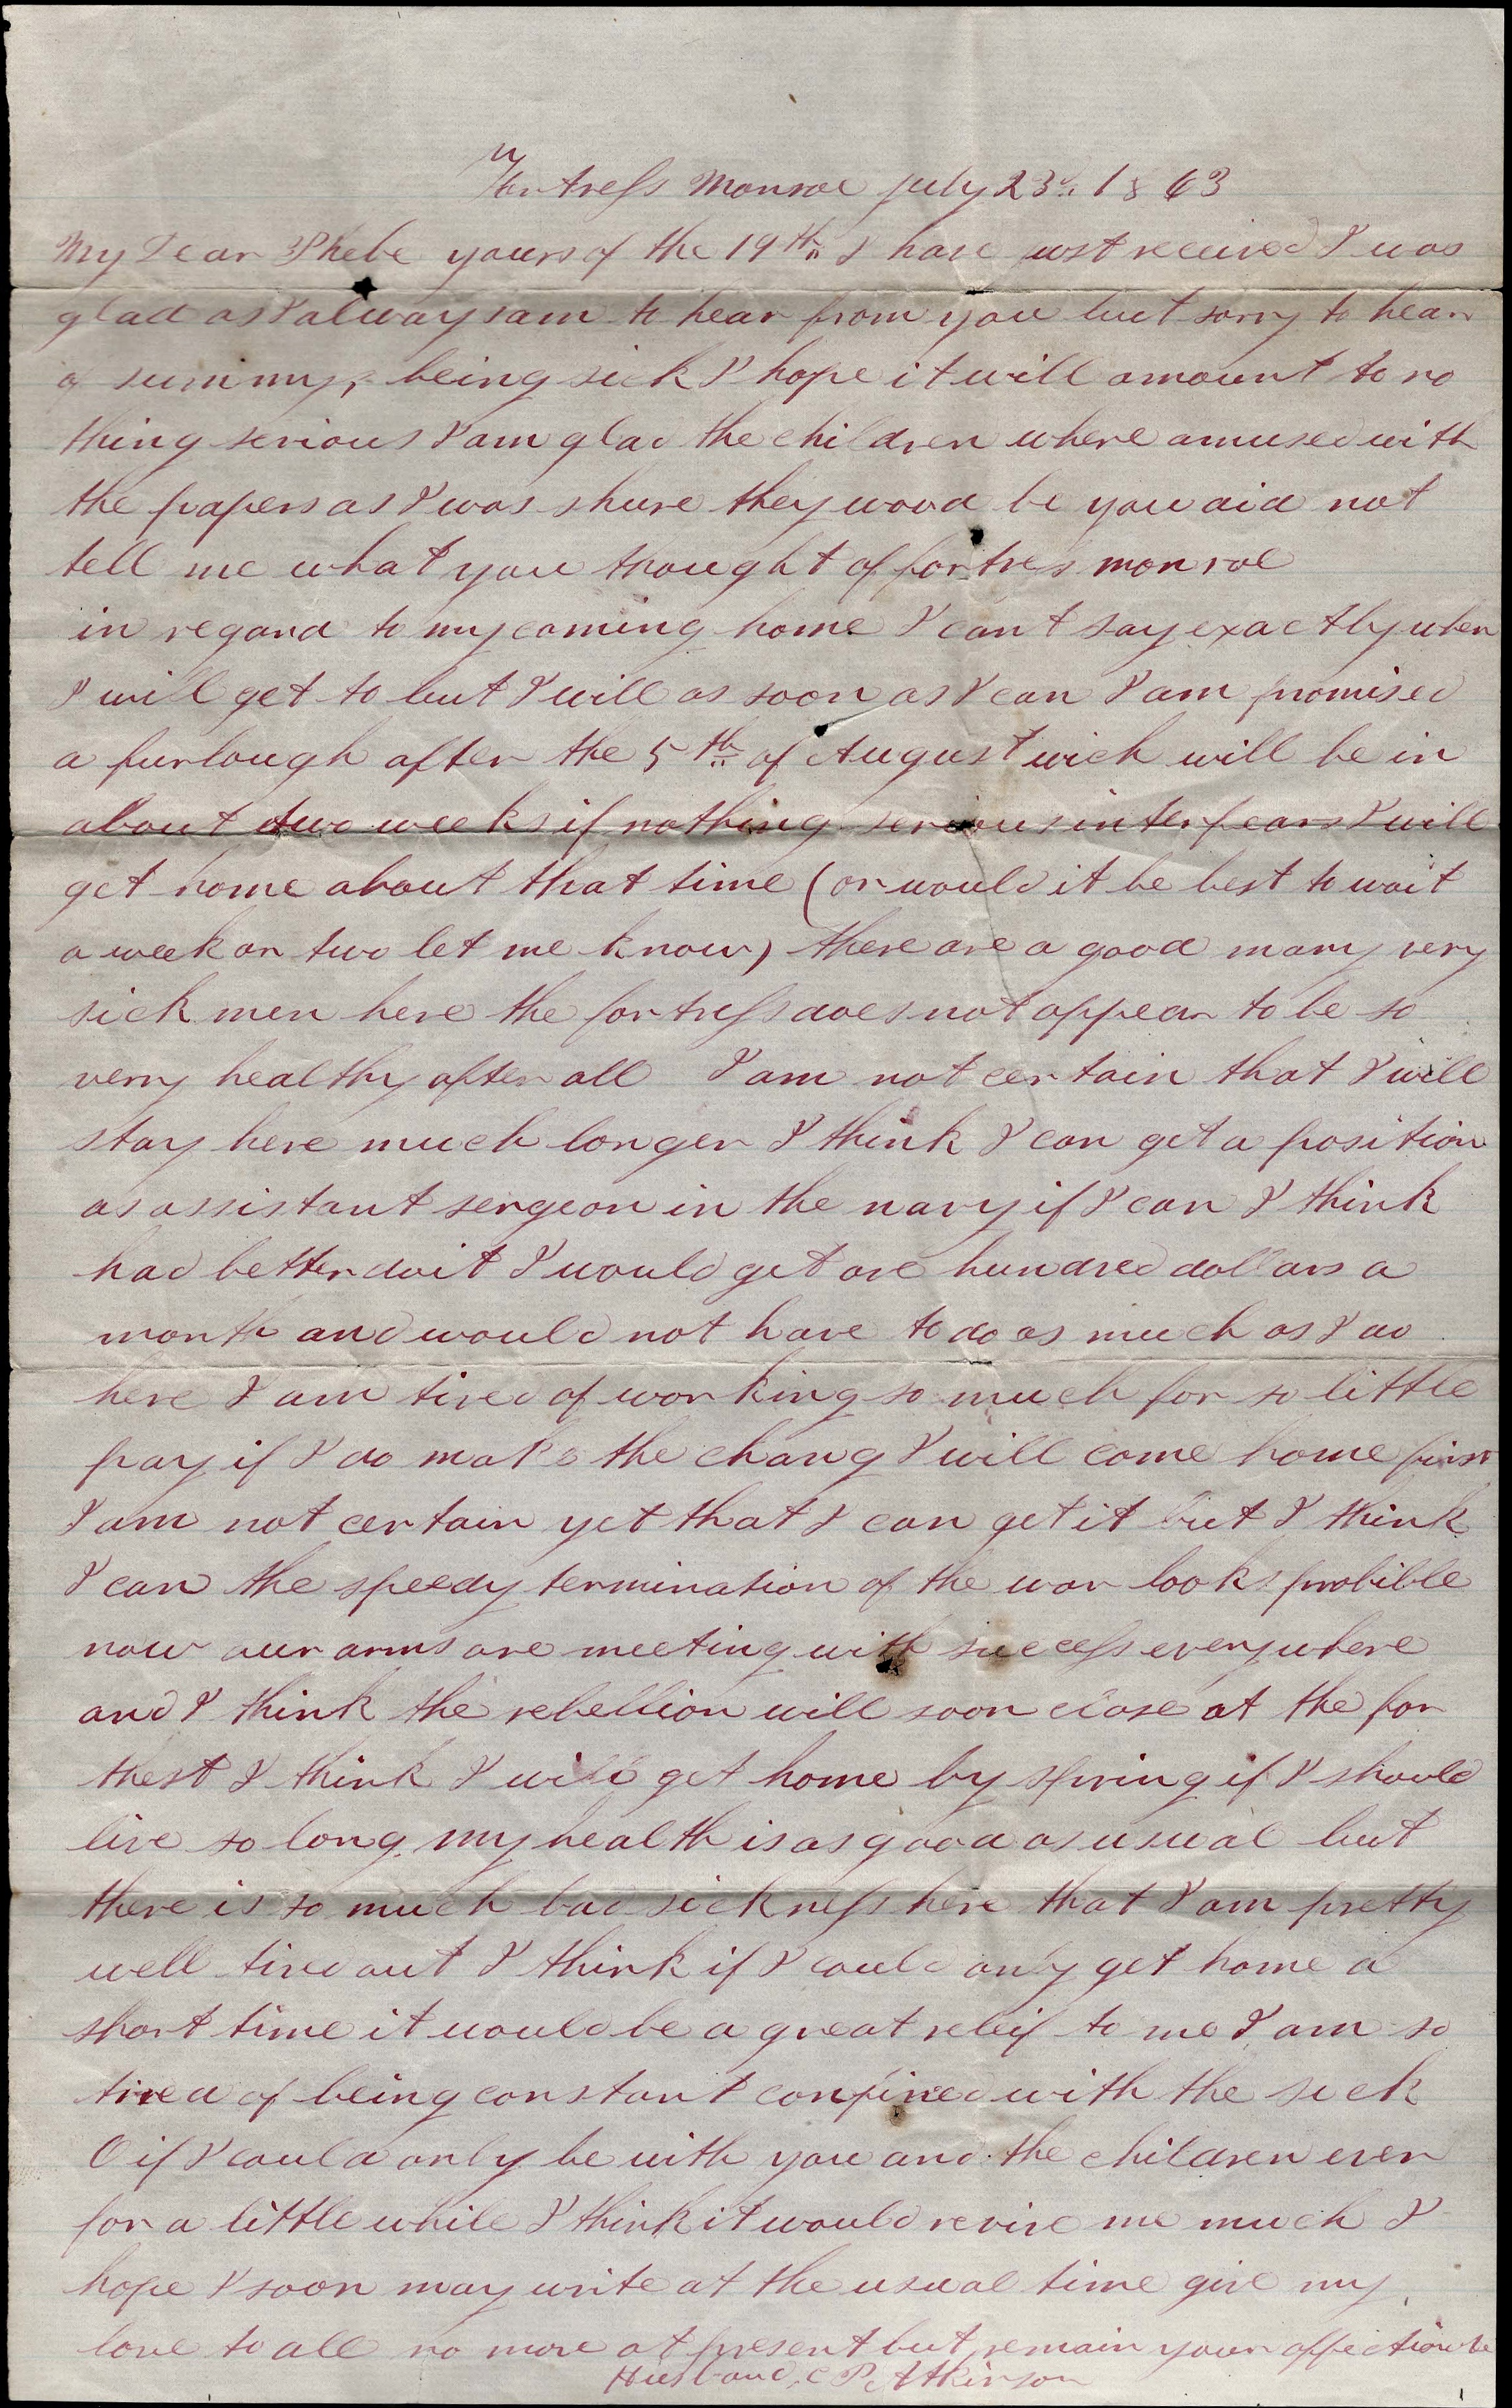 Fortress Monroe July 23d 1863
My Dear Phebe yours of the 19th I have just received I was
glad as I always am to hear from you but sorry to hear
of summys being sick I hope it will amount to no
thing serious I am glad the children where amused with
the papers as I was shure they wood be you did not
tell me what you thought of fortress monroe
in regard to my coming home I cant say exactly when
I will get to but I will as soon as I can I am promised
a furlough after the 5th of August wich will be in
about two weeks if nothing serious interfears I will
get home about that time (or would it be best to wait
a week or two let me know) there are a good many very
sick men here the fortress does not appear to be so
verry healthy after all I am not certain that I will
stay here much longer I think I can get a position
as assistant sergeon in the navy if I can I think
had better do it I would get one hundred dollars a
month and would not have to do as much as I do
here I am tired of working so much for so little
pay if I do make the chang I will come home first
I am not certain yet that I can get it but I think
I can the speedy termination of the war looks probible
now our arms are meeting with success everywhere
and I think the rebellion will soon close at the far
thest I think I will get home by spring if I should
live so long my health is as good as usual but
there is so much bad sickness here that I am pretty
well tired out I think if I could only get home a
short time it would be a great releif to me I am so
tired of being constant confined with the sick
O if I could only be with you and the children even
for a little while I think it would revive me much I
hope I soon may write at the usual time give my
love to all no more at present but remain your affectionate
Husband, C P Atkinson